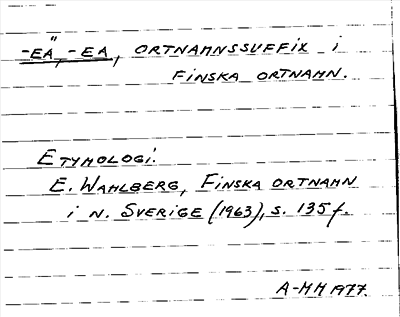 -EÄ, -EA, ORTNAMNSSUFFIX i
FINSKA ORTNAMN.
ETYMOLOGI:
E. WAHLBERG, FINSKA ORTNAMN
i N. SVERIGE (1963), s. 135 f.
A-MH 1977.